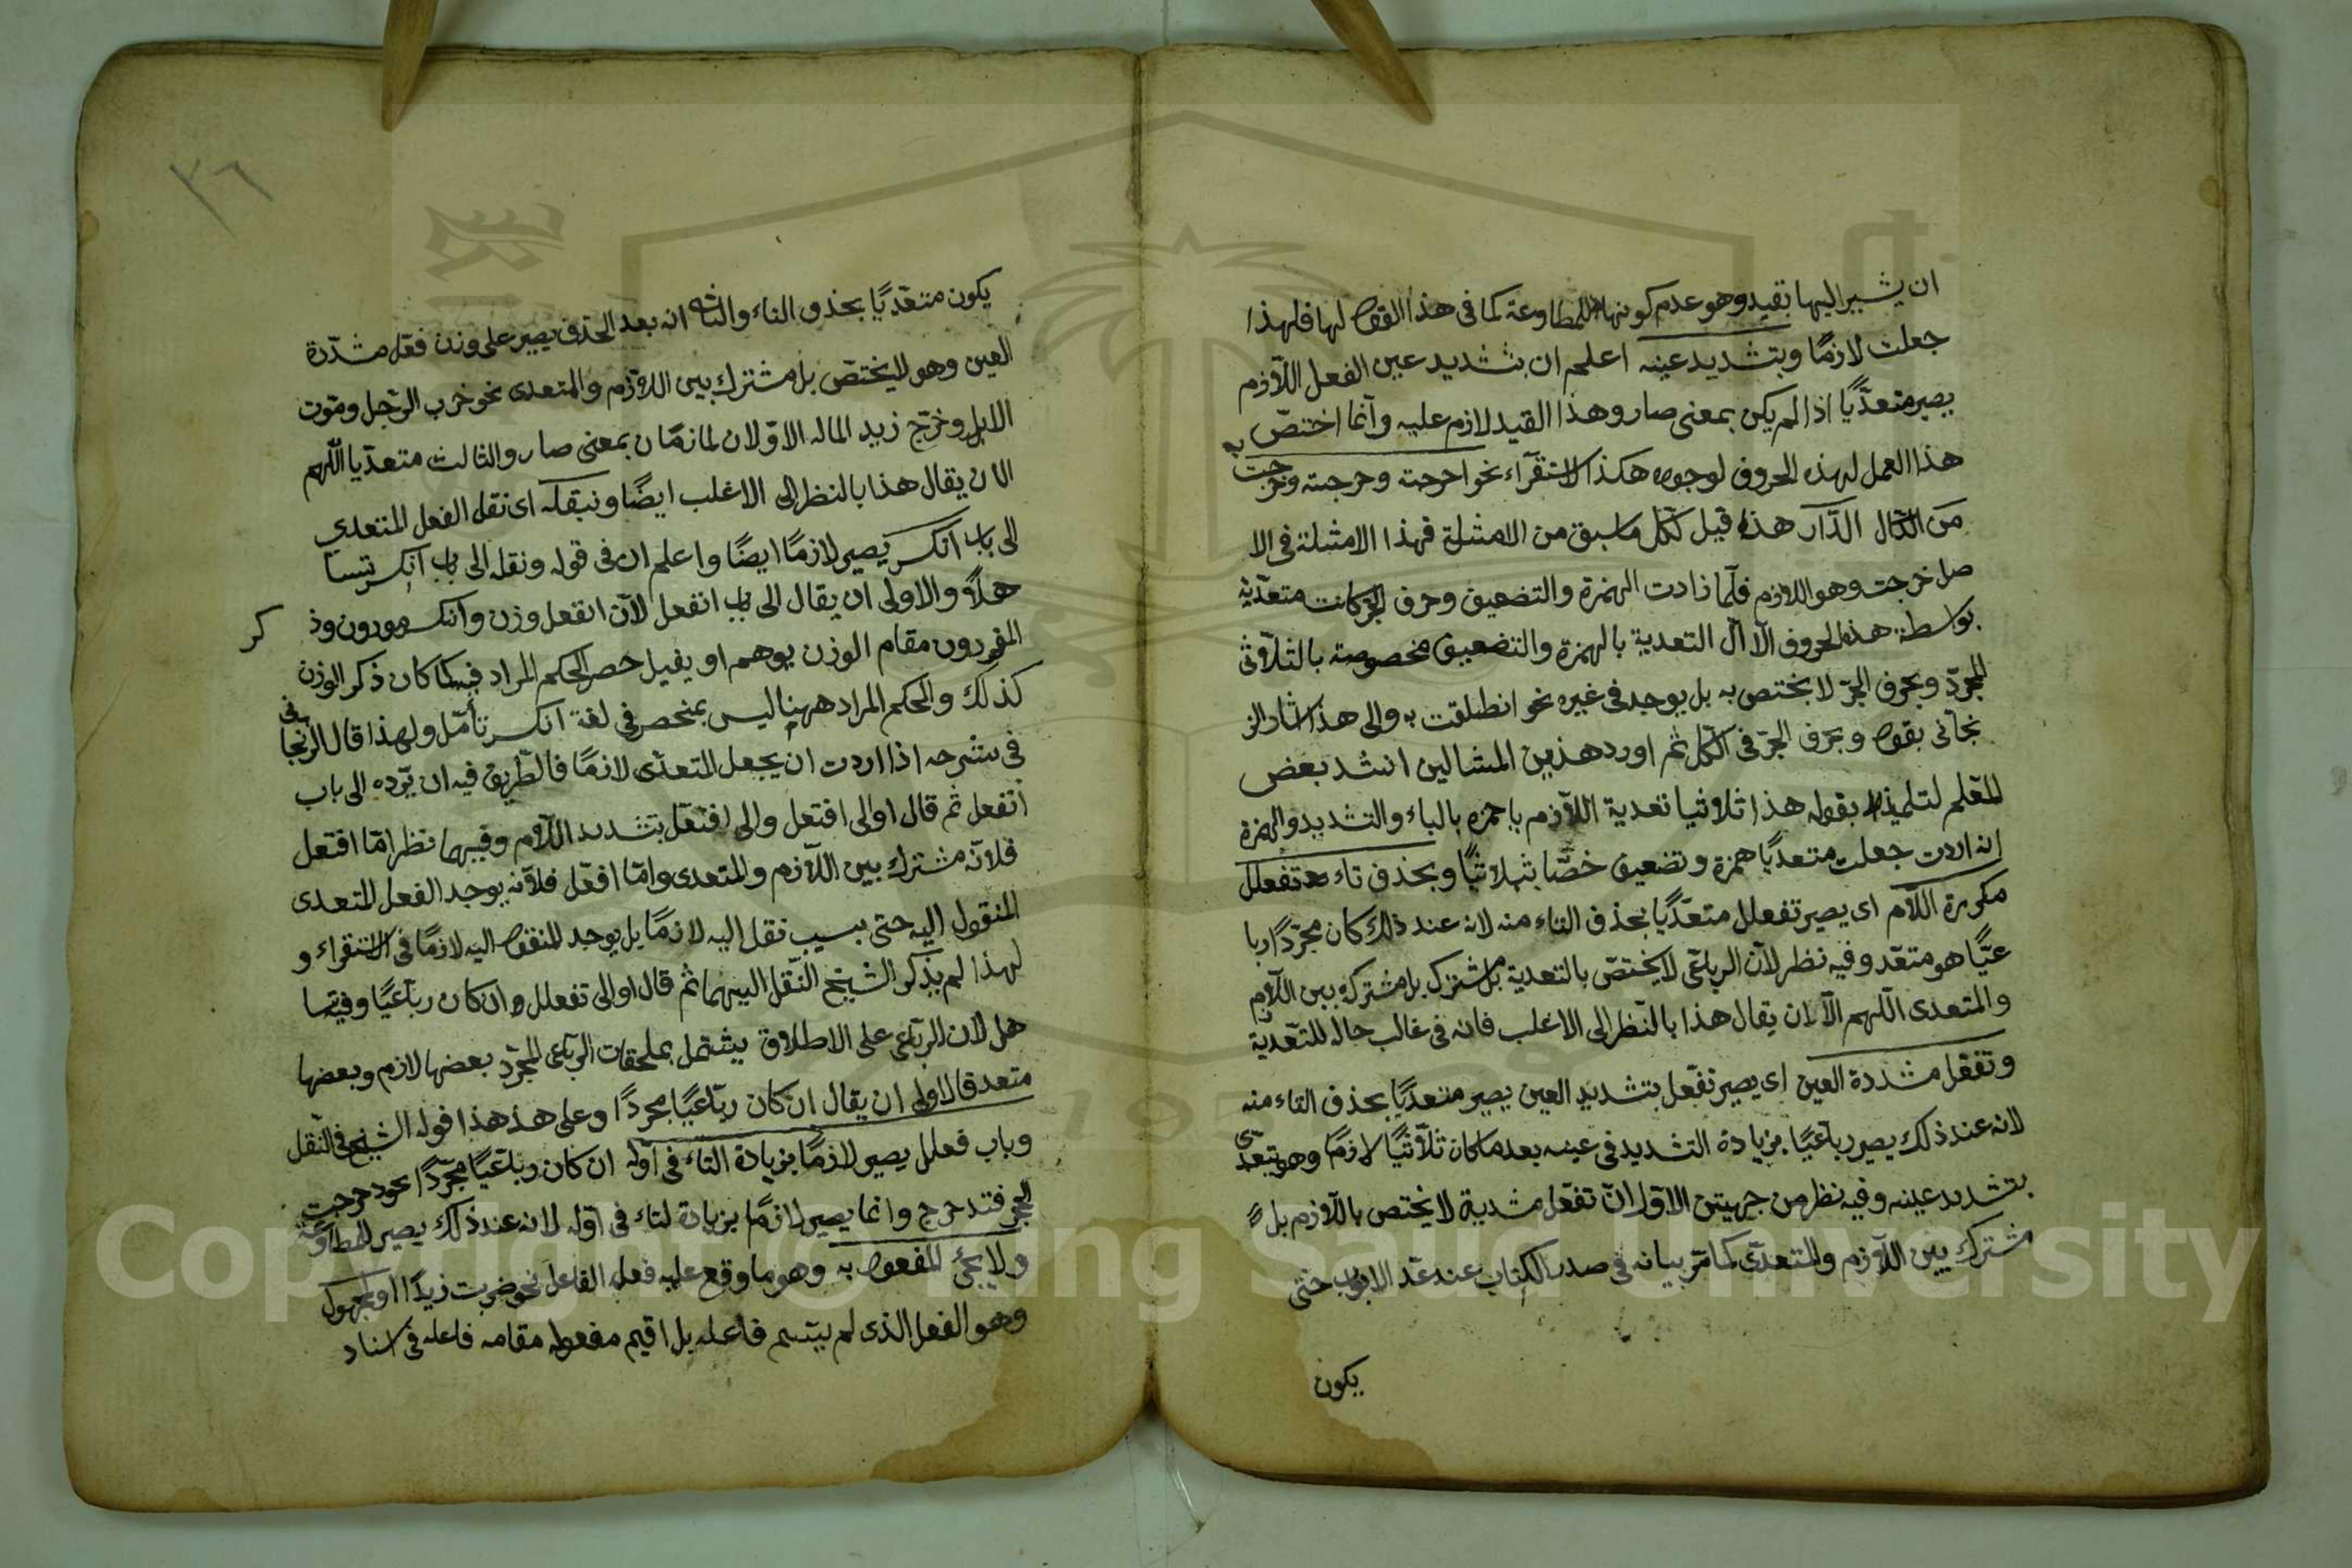 ان يشير اليها بقيد وهو عدم كونها للمطاوعة كما في هذا القول لها فلهذا
جعلت لازمًا وبتشديد عينه اعلم ان بتشديد عين الفعل اللازم
يصير متعدّيًا اذا لم يكن بمعنى صار وهذا القيد لازم عليه وانّما اختصّ به
هذا العمل لهذه الحروف لوجوه هكذا الاستقراء نحو اخرجته وخرّجته وخرجت
من الدار هذه قيل لكل ما سبق من الامثلة فهذا الامثلة في الا
صل خرجت وهو اللازم فلمّا زادت الهمزة والتضعيف وحرف الجر كانت متعدّية
بواسطة هذه الحروف الّا انّ التعدية بالهمزة والتضعيف مخصوصة بالثلاثي
المجرّد وبحرف الجرّ لا يختص به بل يوجد في غيره نحو انطلقت به والى هذا اشار الز
نجاني بقوله وبحرف الجرّ في الكل ثم اورد هذين المثالين انشد بعض
المعلم لتلميذه بقوله هذا ثلاثيا تعدية اللازم يا حمزه بالباء والتشديد والهمزة
ان اردت جعلت متعديًا همزة وتضعيف خصّا بثلاثيًا وبحذف تاء تفعلل
مكررة اللام اى يصير تفعلل متعدّيًا بحذف التاء منه لانه عند ذلك كان مجرّدًا ربا
عيًّا هو متعّد وفيه نظر لان الرباعّي لا يختصّ بالتعدية بل مشترك بين اللازم
والمتعدى اللّهم الّا ان يقال هذا بالنظر الى الاغلب فانه في غالب حاله للتعدية
وتفعّل مشددة العين اى يصير تفعّل بتشديد العين يصير متعديًا بحذف التاء منه
لانه عند ذلك يصير رباعيًا بزيادة التشديد في عينه بعد ما كان ثلاثيًا لازمًا وهو يتعدّى
بتشديد عينه وفيه نظر من جهتين الاوّل انّ تفعّل لا يختص باللازم بل
مشترك بين اللازم والمتعدّى كما مرّ بيانه في صدر الكتاب عند عدّ الابواب حتى
يكون
٣٦
يكون متعدّيًا بحذف التاء والثاني انه بعد الحذف يصير على وزن فعّل مشدّدة
العين وهو لا يختصّ بل مشترك بين اللازم والمتعدى نحو خرب الرّجل وموّت
الابل وخرّج زيد المال الاوّلان لازمان بمعنى صار والثالث متعدّيا اللّهم
الا ان يقال هذا بالنظر الى الاغلب ايضًا وبنقله اى نقل الفعل المتعدي
الى باب انكسر يصير لازمًا ايضًا واعلم ان في قوله ونقله الى باب انكسر تسا
هلًا والاولى ان يقال الى باب انفعل لان انفعل وزن وانكسر موزون وذ كر
الموزون مقام الوزن يوهم او يفيد حصر الحكم المراد فيه كما كان ذكر الوزن
كذلك والحكم المراد ههنا ليس بمنحصر في لغة انكسر تأمّل ولهذا قال الزنجانى
في شرحه اذا اردت ان يجعل المتعدّى لازمًا فالطّريق فيه ان تردّه الى باب
انفعل ثم قال او الى افتعل والى افعلّ بتشديد اللام وفيهما نظر امّا افتعل
فلانّه مشترك بين اللازم والمتعدى وامّا افعلّ فلانّه يوجد الفعل المتعدى
المنقول اليه حتى بسبب نقل اليه لازمًا بل يوجد المنقول اليه لازمًا في الاستقراء و
لهذا لم يذكر الشيخ النّقل اليهما ثم قال او الى تفعلل وان كان رباعيًا وفيه تسا
هل لان الرباعي على الاطلاق يشتمل بملحقات الرباعى المجرّد بعضها لازم وبعضها
متعد فالاولى ان يقال ان كان رباعيًا مجردًا وعلى هذا قوله الشيخ في النّقل
وباب فعلل يصير لازمًا بزيادة التاء في اوّله ان كان رباعيًا مجرّدًا نحو دحرجت
الحجر فتدحرج وانما يصير لازمًا بزيادة التاء في اوّله لانه عند ذلك يصير للمطاوعة
ولا يجئ المفعول به وهو ما وقع عليه فعل الفاعل نحو ضربت زيدًا والمجهول
وهو الفعل الذى لم يسم فاعله بل اقيم مفعوله مقام فاعله في اسناد
Copyright © King Saud University